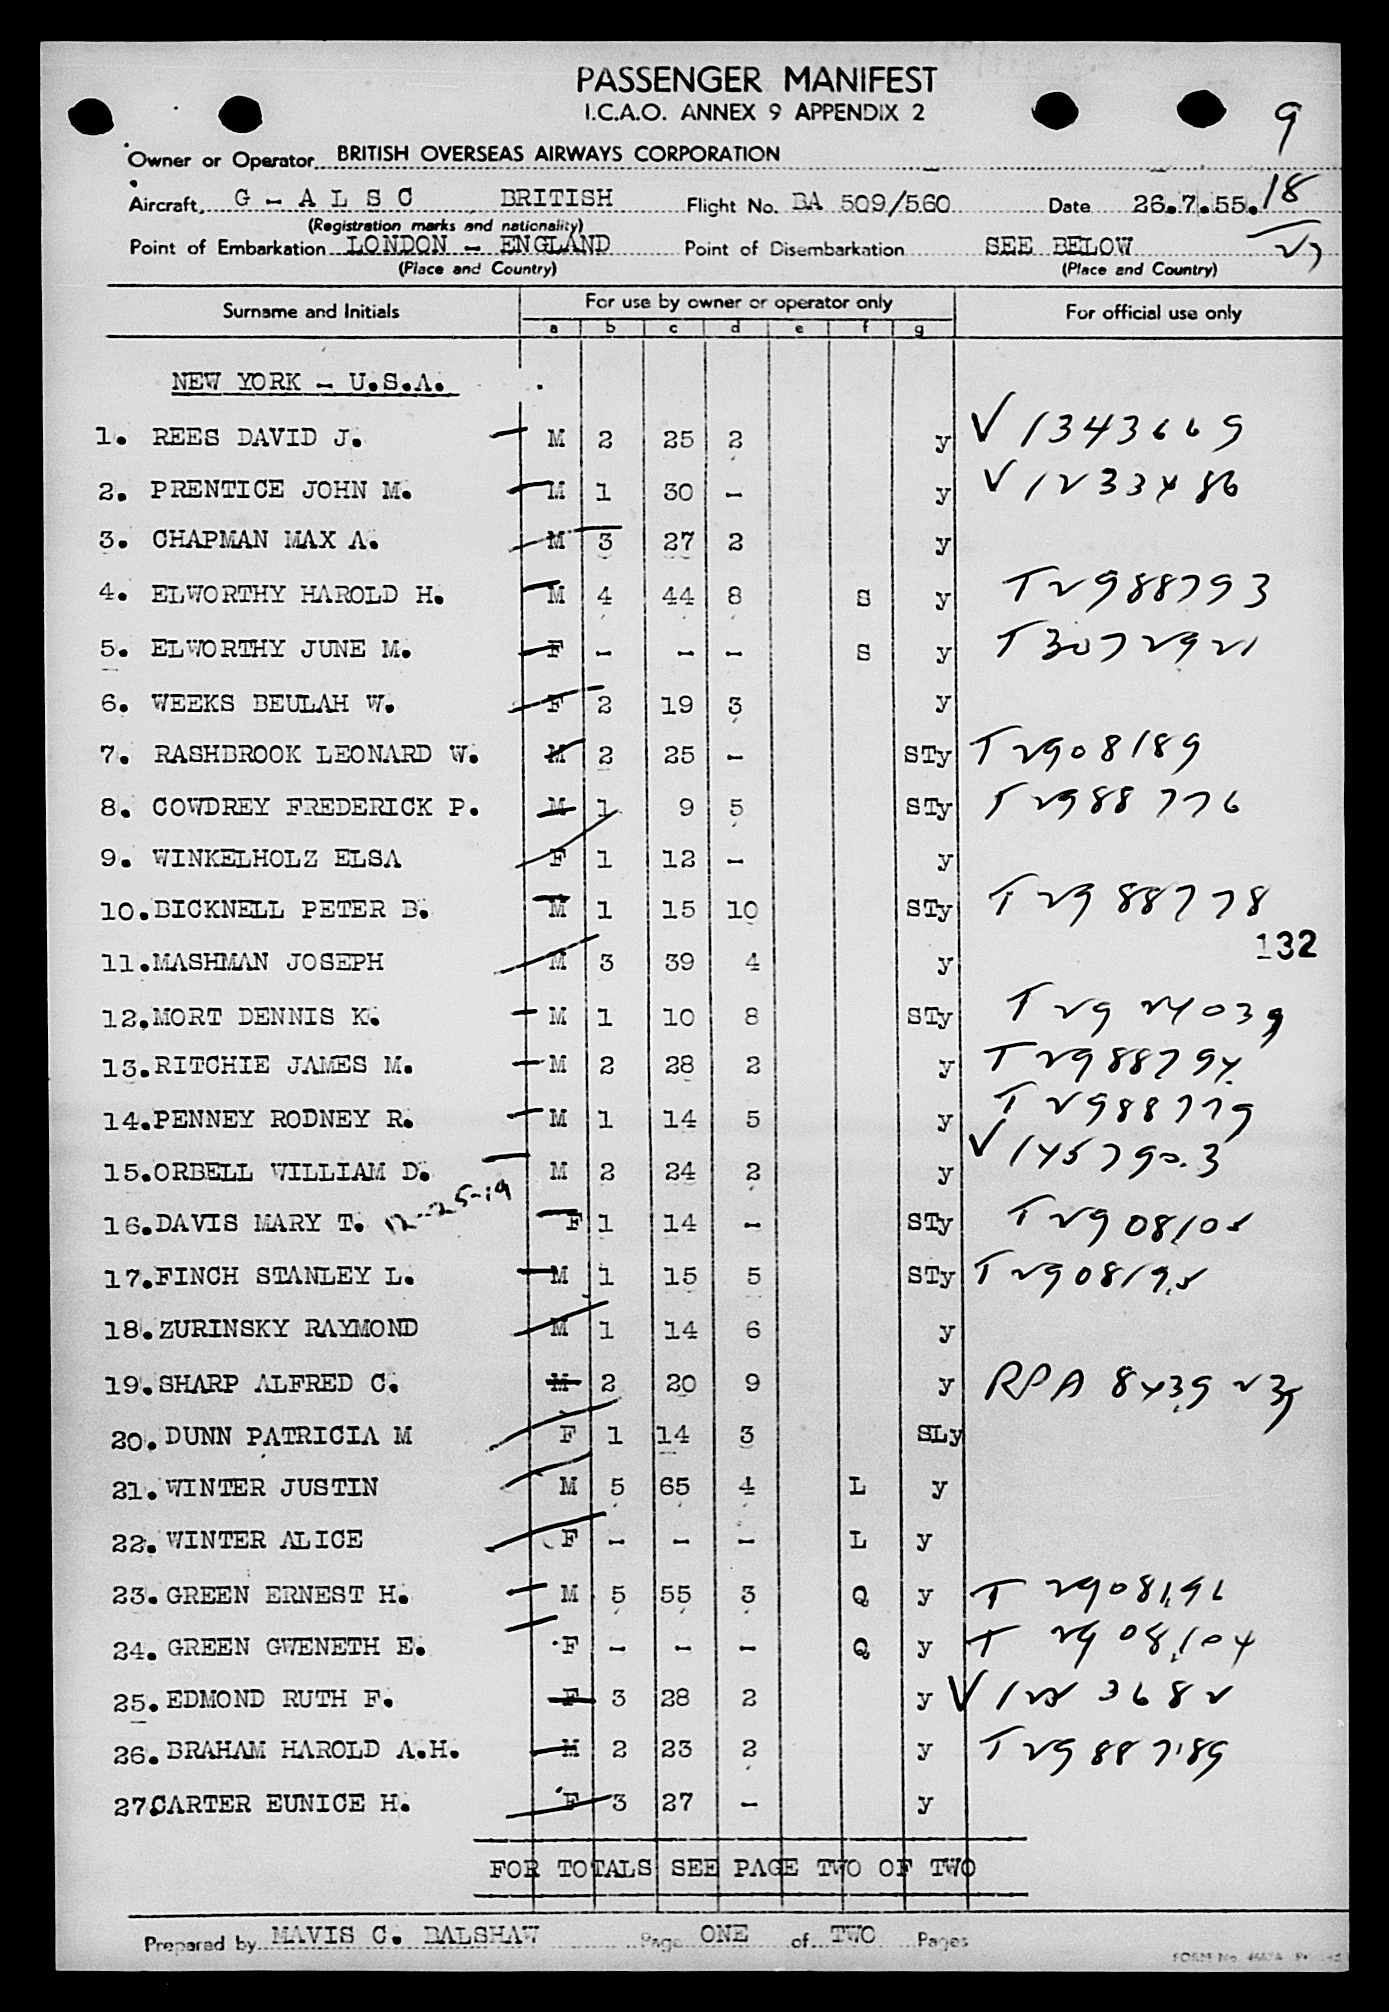 PASSENGER MANIFEST
I.C.A.O. ANNEX 9 APPENDIX 2
9
Owner or Operator BRITISH OVERSEAS AIRWAYS CORPORATION
Aircraft G - A L S C BRITISH Flight No. BA 509/560 Date 26.7.55. 18
(Registration marks and nationality)
Point of Embarkation LONDON - ENGLAND Point of Disembarkation SEE BELOW
(Place and Country) (Place and Country)
Surname and Initials For use by owner or operator only For official use only
a b c d e f g
NEW YORK - U.S.A.
1. REES DAVID J. M 2 25 2 y V 1343669
2. PRENTICE JOHN M. M 1 30 - y V 1233486
3. CHAPMAN MAX A. M 3 27 2 y
4. ELWORTHY HAROLD H. M 4 44 8 S y T 2988793
5. ELWORTHY JUNE M. F - - - S y T 3072921
6. WEEKS BEULAH W. F 2 19 3 y
7. RASHBROOK LEONARD W. M 2 25 - STy T 2908189
8. COWDREY FREDERICK P. M 1 9 5 STy T 2988776
9. WINKELHOLZ ELSA F 1 12 - y
10. BICKNELL PETER B. M 1 15 10 STy T 2988778
132
11. MASHMAN JOSEPH M 3 39 4 y
12. MORT DENNIS K. M 1 10 8 STy T 2924039
13. RITCHIE JAMES M. M 2 28 2 y T 2988794
14. PENNEY RODNEY R. M 1 14 5 y T 2988779
15. ORBELL WILLIAM D. M 2 24 2 y V 1457903
16. DAVIS MARY T. 12-25-19 F 1 14 - STy T 290810
17. FINCH STANLEY L. M 1 15 5 STy T 290819
18. ZURINSKY RAYMOND M 1 14 6 y
19. SHARP ALFRED C. M 2 20 9 y RPA 8439239
20. DUNN PATRICIA M F 1 14 3 SLy
21. WINTER JUSTIN M 5 65 4 L y
22. WINTER ALICE F - - - L y
23. GREEN ERNEST H. M 5 55 3 Q y T 2908196
24. GREEN GWENETH E. F - - - Q y T 2908104
25. EDMOND RUTH F. F 3 28 2 y V 3682
26. BRAHAM HAROLD A.H. M 2 23 2 y T 2988789
27. CARTER EUNICE H. F 3 27 - y
FOR TOTALS SEE PAGE TWO OF TWO
Prepared by MAVIS C. BALSHAW Page ONE of TWO Pages
FORM No.